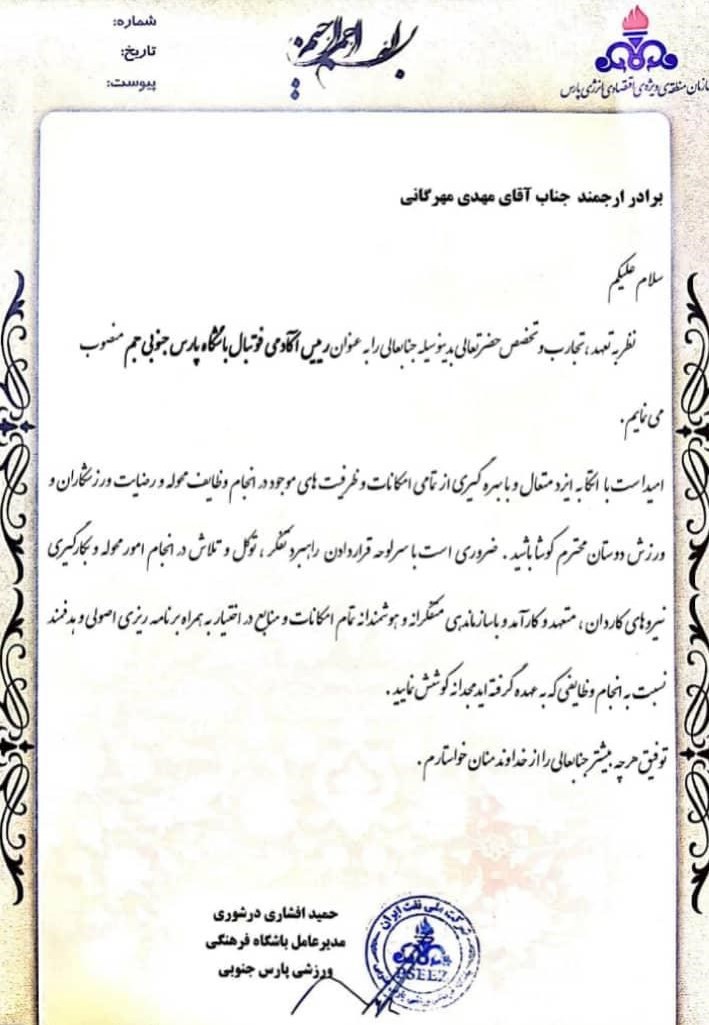 بسم الله الرحمن الرحیم
شماره:
تاریخ:
پیوست:
سازمان منطقه‌ی ویژه‌ی اقتصادی انرژی پارس
برادر ارجمند جناب آقای مهدی مهرگانی
سلام علیکم
نظر به تعهد، تجارب و تخصص حضرتعالی بدینوسیله جنابعالی را به عنوان رییس آکادمی فوتبال باشگاه پارس جنوبی جم منصوب
می نمایم.
امید است با اتکا به ایزد متعال و با بهره گیری از تمامی امکانات و ظرفیت های موجود در انجام وظایف محوله و رضایت ورزشکاران و
ورزش دوستان محترم کوشا باشید. ضروری است با سرلوحه قراردادن راهبرد تفکر، توکل و تلاش در انجام امور محوله و بکارگیری
نیروهای کاردان، متعهد و کارآمد و باسازماندهی متفکرانه و هوشمندانه تمام امکانات و منابع در اختیار به همراه برنامه ریزی اصولی و هدفمند
نسبت به انجام وظایفی که به عهده گرفته اید مجدانه کوشش نمایید.
توفیق هرچه بیشتر جنابعالی را از خداوند منان خواستارم.
حمید افشاری درشوری
مدیرعامل باشگاه فرهنگی
ورزشی پارس جنوبی
شرکت ملی نفت ایران
PSEEZ